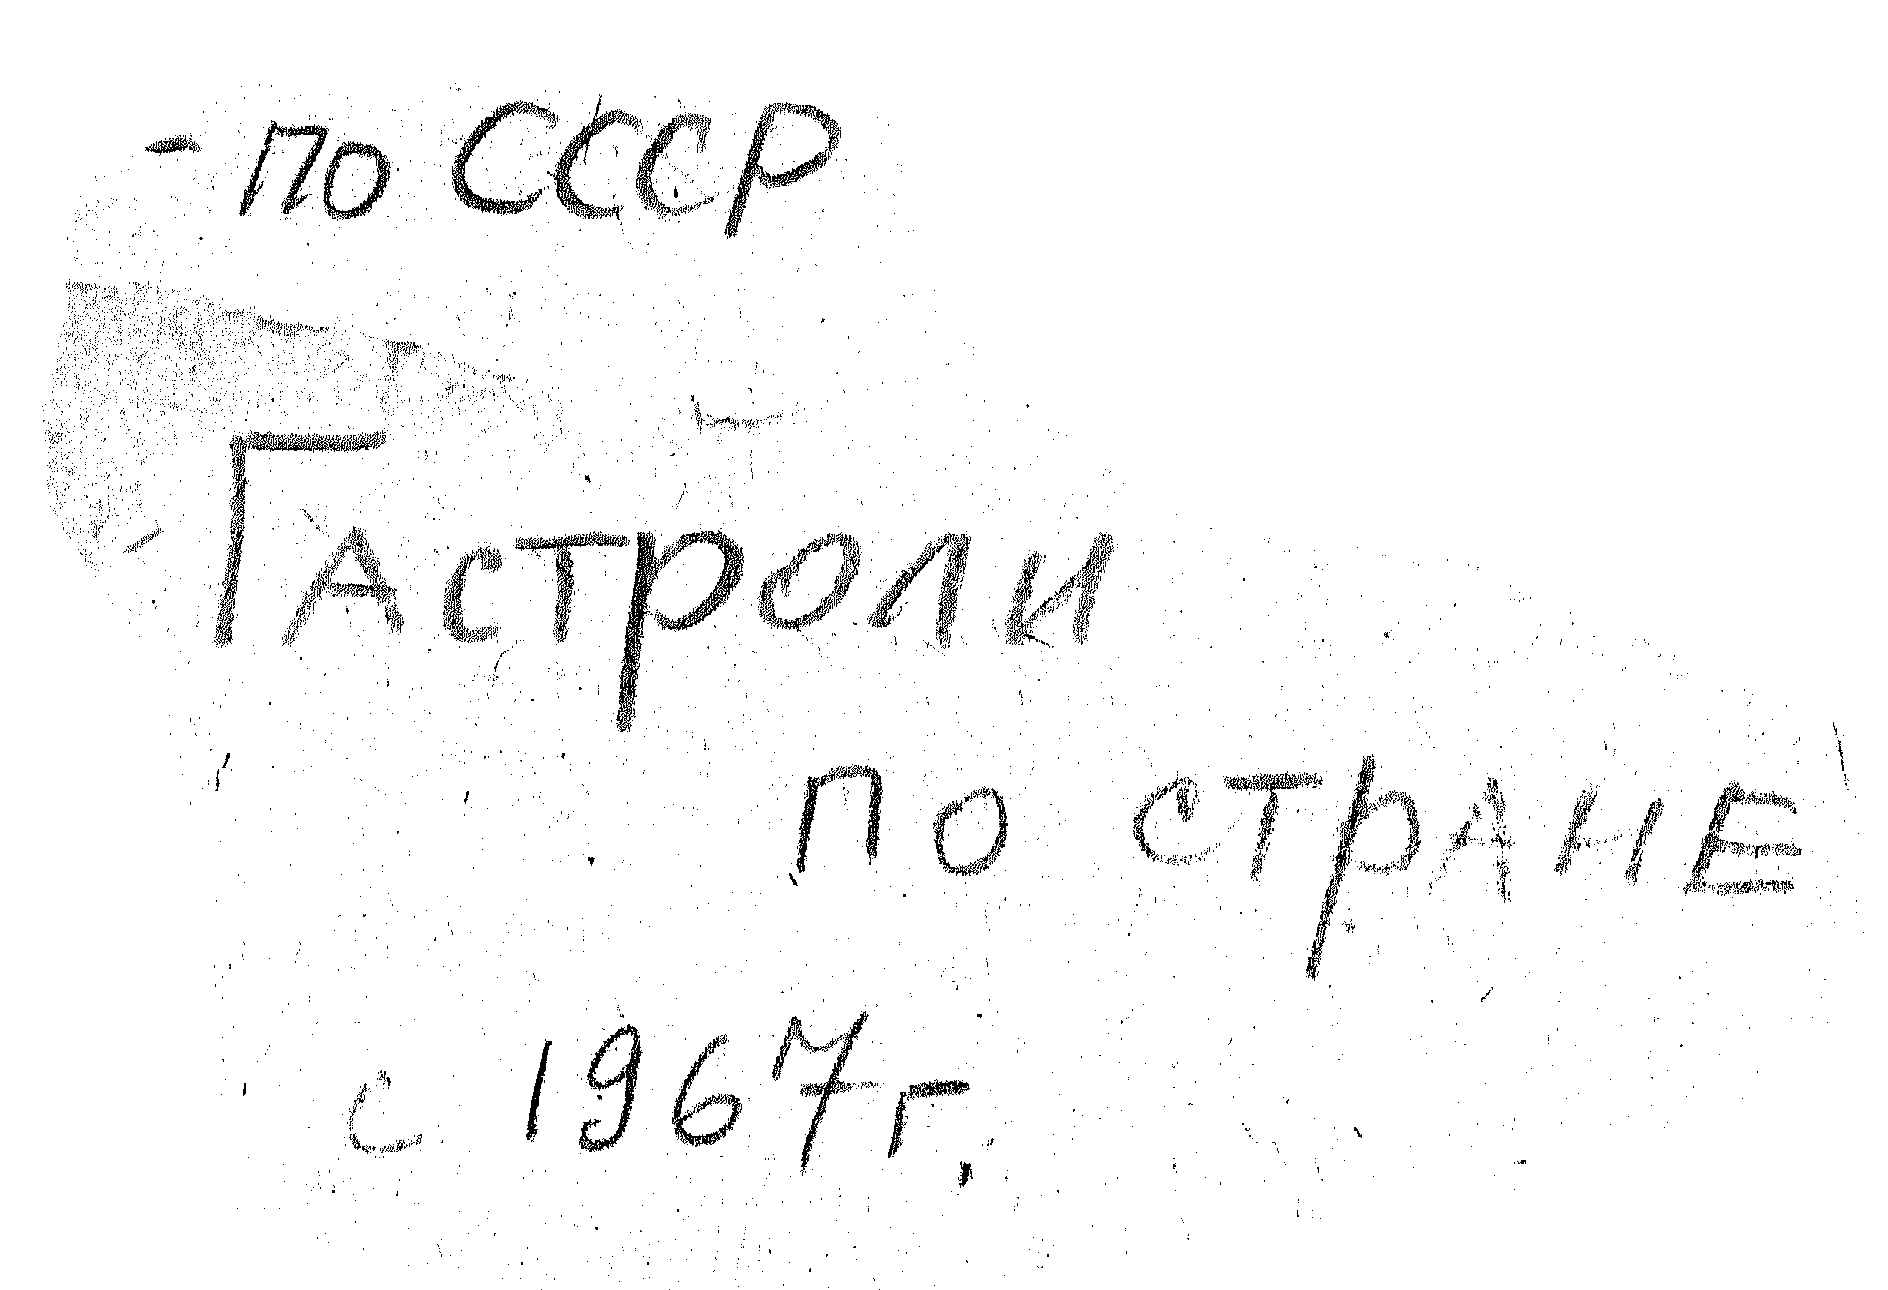 - по СССР
Гастроли
по стране
с 1967г.